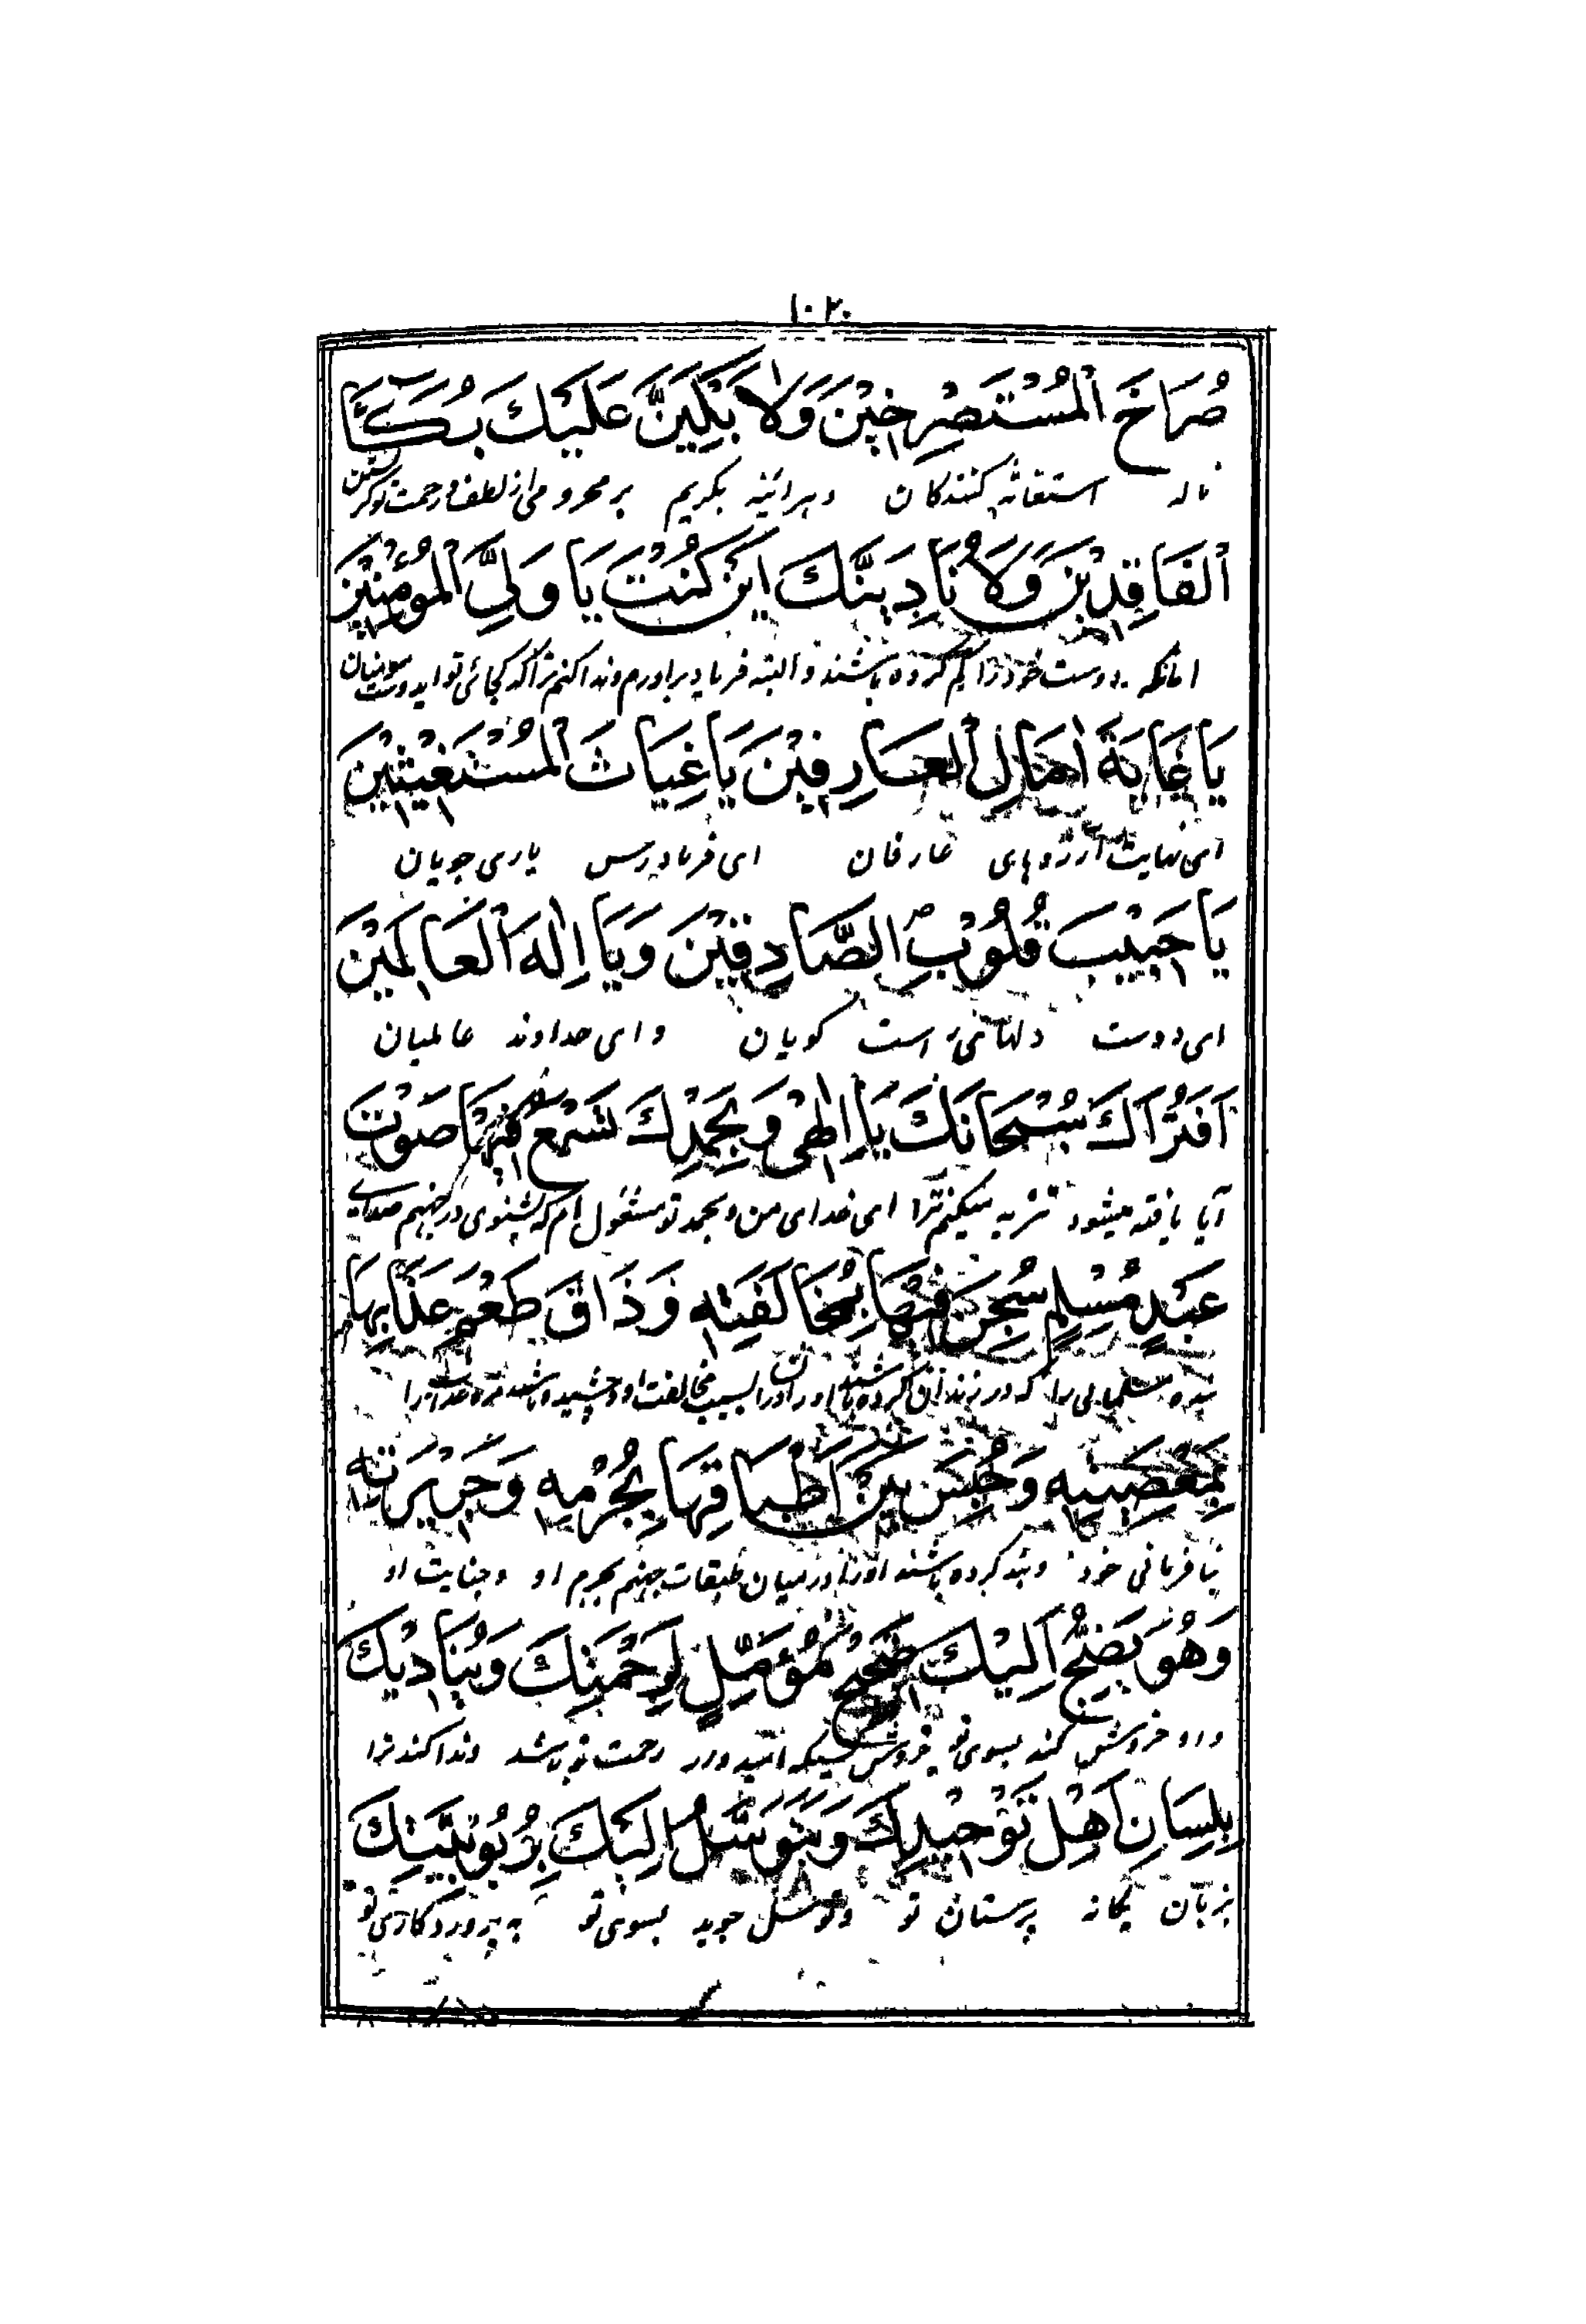 ١٠٢٠
صُرَاخَ الْمُسْتَصْرِخِيْنَ وَلَاَبْكِيَنَّ عَلَيْكَ بُكَاءَ
ناله استغاثه کنندکان وهرائینه بکریم بر محرومی از لطف و رحمت تو کریستن
الْفَاقِدِيْنَ وَلَاُنَادِيَنَّكَ اَيْنَ كُنْتَ يَا وَلِيَّ الْمُؤْمِنِيْنَ
انانکه دوست خود را کم کرده باشند و البته فریاد براورم و ندا کنم ترا که کجائی تو اید دوست مومنان
يَا غَايَةَ اٰمَالِ الْعَارِفِيْنَ يَا غِيَاثَ الْمُسْتَغِيْثِيْنَ
ای نهایت ارزوهای عارفان ای فریادرس یاری جویان
يَا حَبِيْبَ قُلُوْبِ الصَّادِقِيْنَ وَيَا اِلٰهَ الْعَالَمِيْنَ
ای دوست دلهای راست کویان و ای خداوند عالمیان
اَفَتُرَاكَ سُبْحَانَكَ يَا اِلٰهِيْ وَبِحَمْدِكَ تَسْمَعُ فِيْهَا صَوْتَ
آیا یافته میشود تنزیه میکنم ترا ای خدای من و بحمد تو مشغول ام که بشنوی در جهنم صدای
عَبْدٍ مُسْلِمٍ سُجِنَ فِيْهَا بِمُخَالَفَتِهٖ وَذَاقَ طَعْمَ عَذَابِهَا
بنده مسلمانی را که در زندان کرده باشند او را دران بسبب مخالفت او و چشیده باشد مزه عذاب را
بِمَعْصِيَتِهٖ وَحُبِسَ بَيْنَ اَطْبَاقِهَا بِجُرْمِهٖ وَجَرِيْرَتِهٖ
بنافرمانی خود و بند کرده باشند او را در میان طبقات جهنم بجرم او و جنایت او
وَهُوَ يَضِجُّ اِلَيْكَ ضَجِيْجَ مُؤَمِّلٍ لِرَحْمَتِكَ وَيُنَادِيْكَ
و او خروش کند بسوی تو خروش کسیکه امید ورر رحمت تو باشد و ندا کند ترا
بِلِسَانِ اَهْلِ تَوْحِيْدِكَ وَيَتَوَسَّلُ اِلَيْكَ بِرُبُوْبِيَّتِكَ
بزبان یکانه پرستان تو و توسل جوید بسوی تو به پروردکاری تو